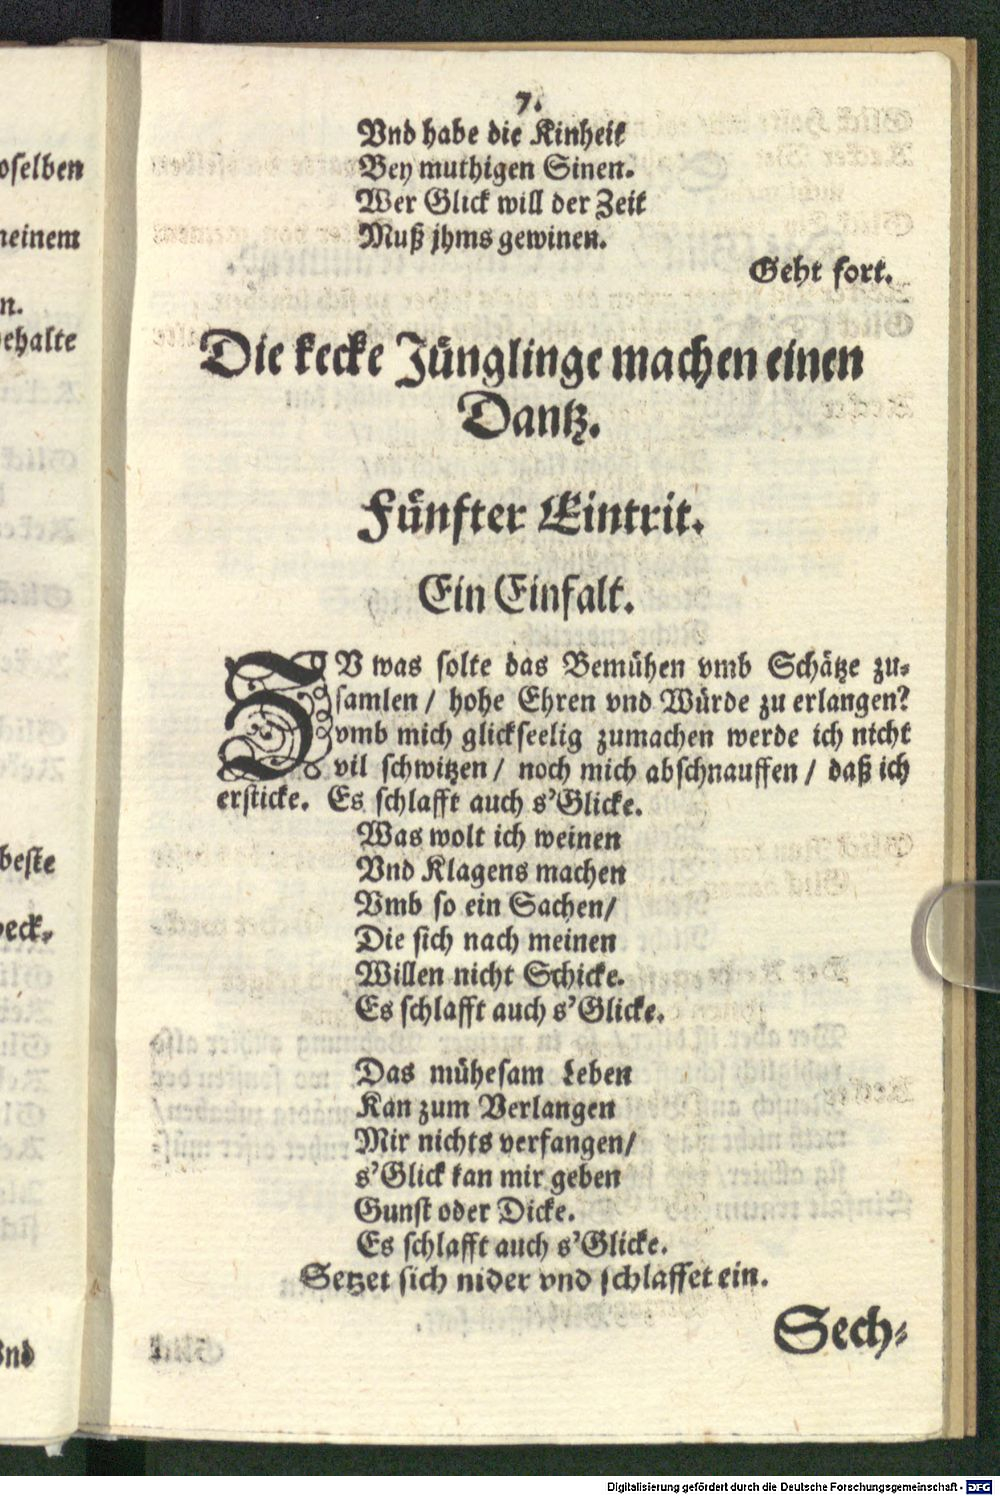 7.
Vnd habe die Kinheit
Bey muthigen Sinen.
Wer Glick will der Zeit
Muß jhms gewinen.
Geht fort.
Die kecke Jünglinge machen einen
Dantz.
Fünfter Eintrit.
Ein Einfalt.
ZV was solte das Bemühen vmb Schätze zu-
samlen / hohe Ehren vnd Würde zu erlangen?
vmb mich glickseelig zumachen werde ich nicht
vil schwitzen / noch mich abschnauffen / daß ich
ersticke. Es schlafft auch s'Glicke.
Was wolt ich weinen
Vnd Klagens machen
Vmb so ein Sachen/
Die sich nach meinen
Willen nicht Schicke.
Es schlafft auch s'Glicke.
Das mühesam Leben
Kan zum Verlangen
Mir nichts verfangen/
s'Glick kan mir geben
Gunst oder Dicke.
Es schlafft auch s'Glicke.
Setzet sich nider vnd schlaffet ein.
Sech-
oselben
meinem
n.
ehalte
beste
eck-
Vnd
Digitalisierung gefördert durch die Deutsche Forschungsgemeinschaft - DFG